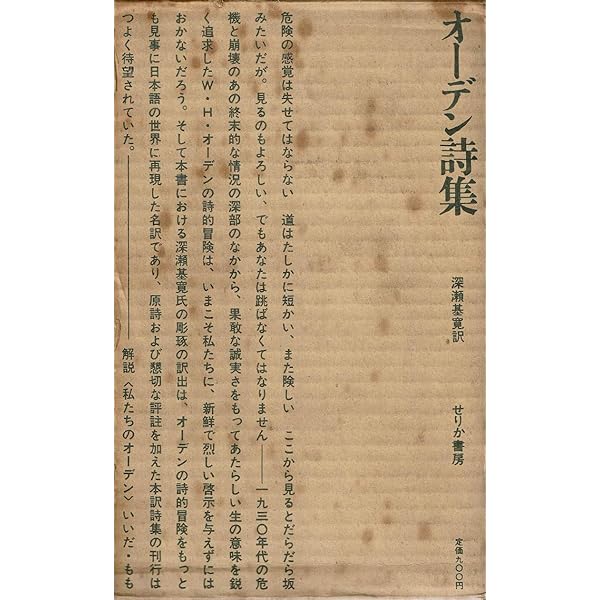 オーデン詩集
深瀬基寛訳
せりか書房
定価九〇〇円
危険の感覚は失せてはならない　道はたしかに短かい、また険しい　ここから見るとだらだら坂
みたいだが。見るのもよろしい、でもあなたは跳ばなくてはなりません――一九三〇年代の危
機と崩壊のあの終末的な情況の深部のなかから、果敢な誠実さをもってあたらしい生の意味を鋭
く追求したW・H・オーデンの詩的冒険は、いまこそ私たちに、新鮮で烈しい啓示を与えずには
おかないだろう。そして本書における深瀬基寛氏の彫琢の訳出は、オーデンの詩的冒険をもっと
も見事に日本語の世界に再現した名訳であり、原詩および懇切な評註を加えた本訳詩集の刊行は
つよく待望されていた。――――解説〈私たちのオーデン〉いいだ・もも